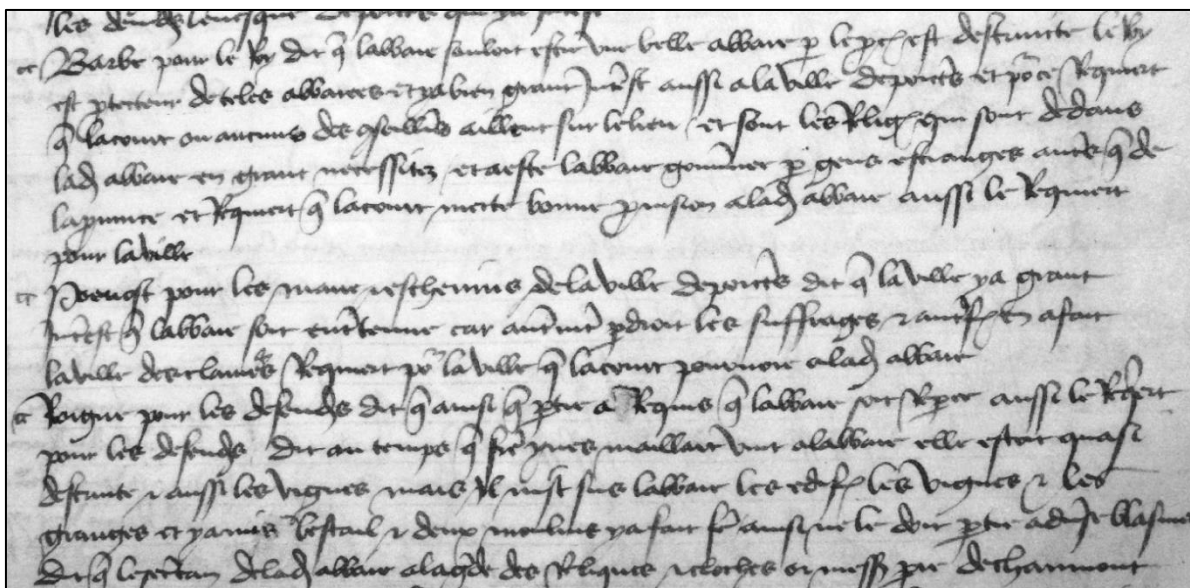 les defends levesque de poictiers que
Barbe pour le Roy dit q labbaie souloit estre une belle abbaie p le pces est destruicte le Roy
est ptecteur de teles abbaies et ya bien grant interest aussi a la ville de poictiers et pour ce Requiert
q la court ou aucuns des conseillers aillent sur le lieu et sont les Relig qui sont dedans
lad abbaie en grant necessitez et a este labbaie gouvernee p gens estranges autres q de
la pvince et Requiert q la court mecte bonne pvision a lad abbaie aussi le Requiert
pour la ville
pour les maire et eschevins de la ville de poictiers dit q la ville ya grant
interest q labbaie soit entretenue car autrement pdroit les suffrages et autresf en a fait
la ville des clameurs Requiert por la ville q la court pourvoie a lad abbaie
Roigne pour les defends dit q ainsi q ptie a Requis q labbaie soit Repee aussi le Requiert
pour les defends dit au temps q fre yves maillart vint a labbaie elle estoit quasi
destruite et aussi les vignes mais il mist sus labbaie les edif les vignes et les
granges et ya mis bestail et deux moulins ya fait fe ainsi ne le doit ptie adverse blasmer
dit q le secretain de lad abbaie a la gde des Reliques et cloches or mess pre de chaumont